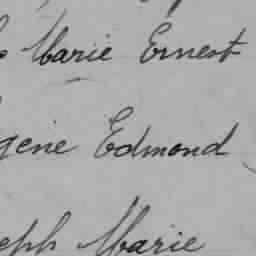 Marie Ernest
gène Edmond
eph Marie